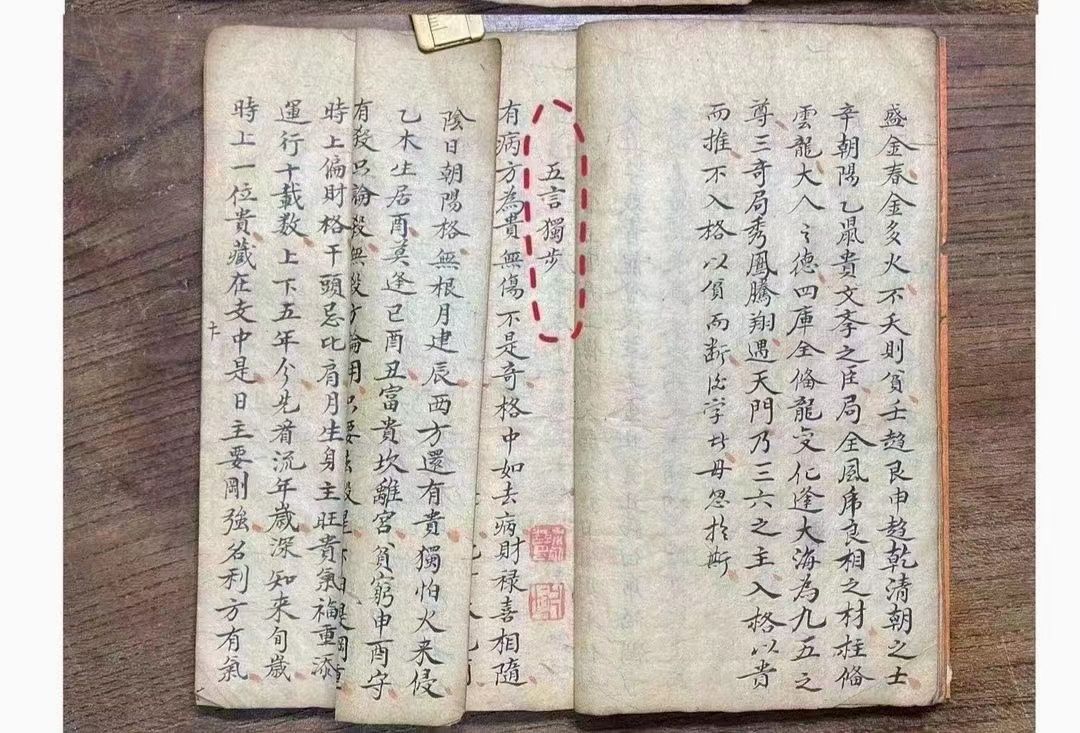 盛金春金多火不夭則貧壬趨艮甲趨乾清朝之士
辛朝陽乙鼠貴文斈之臣局全風虎良相之材柱俻
雲龍大人〻德四庫全俻龍变化逢大海為九五之
尊三奇局秀鳳騰翔遇天門乃三六之主入格以貴
而推不入格以貧而断学毋忽於斯
五言獨步
有病方為貴無傷不是奇格中如去病財禄喜相隨
陰日朝陽格無根月建辰西方還有貴獨怕火来侵
乙木生居酉莫逢巳酉丑富貴坎離宮貧窮申酉守
有殺只論殺無殺方論用只要去殺
時上偏財格干頭忌比肩月生身主旺貴氣福重添
運行十載数上下五年分先看流年歲深知来旬歲
時上一位貴藏在支中是日主要剛強名利方有氣